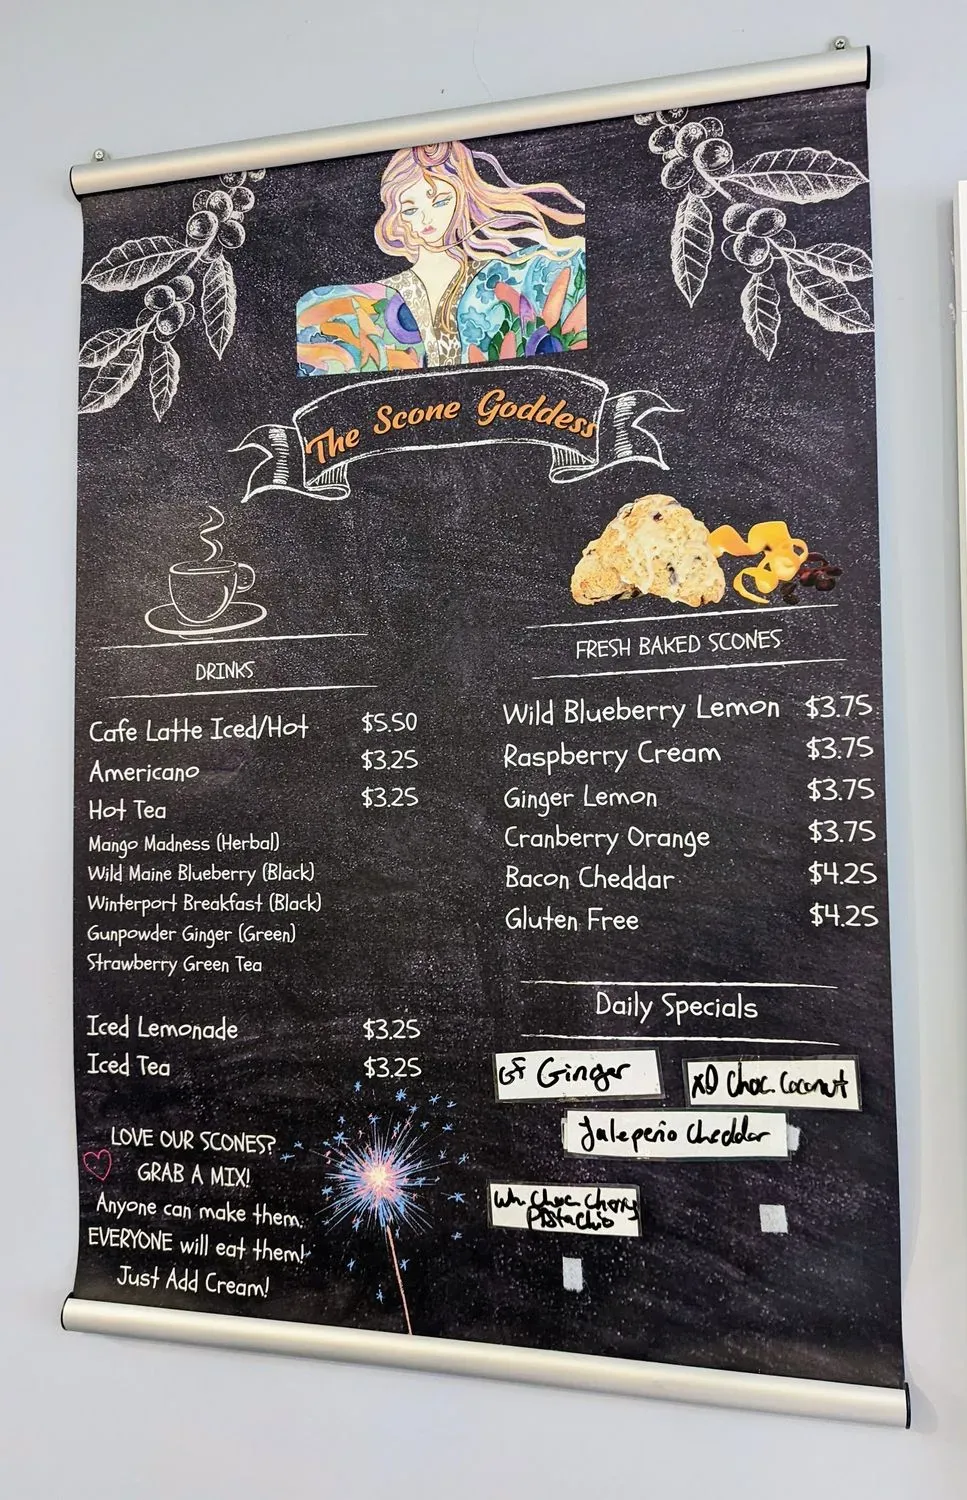 The Scone Goddess
DRINKS
Cafe Latte Iced/Hot $5.50
Americano $3.25
Hot Tea $3.25
Mango Madness (Herbal)
Wild Maine Blueberry (Black)
Winterport Breakfast (Black)
Gunpowder Ginger (Green)
Strawberry Green Tea
Iced Lemonade $3.25
Iced Tea $3.25
LOVE OUR SCONES?
GRAB A MIX!
Anyone can make them.
EVERYONE will eat them!
Just Add Cream!
FRESH BAKED SCONES
Wild Blueberry Lemon $3.75
Raspberry Cream $3.75
Ginger Lemon $3.75
Cranberry Orange $3.75
Bacon Cheddar $4.25
Gluten Free $4.25
Daily Specials
GF Ginger
Choc. Coconut
Jalepeño Cheddar
Wh. Choc Cherry
Pistachio